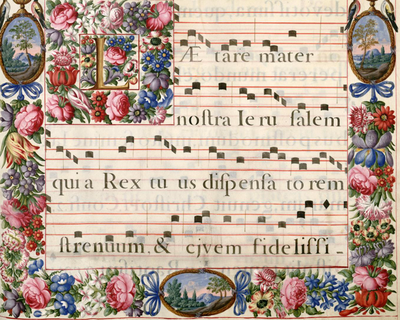 LÆ tare mater
nostra Ieru salem
qui a Rex tu us dispensa to rem
strenuum, & cjvem fidelissi-